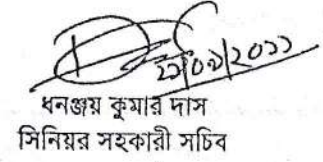 ২১/০২/২০১১
ধনঞ্জয় কুমার দাস
সিনিয়র সহকারী সচিব